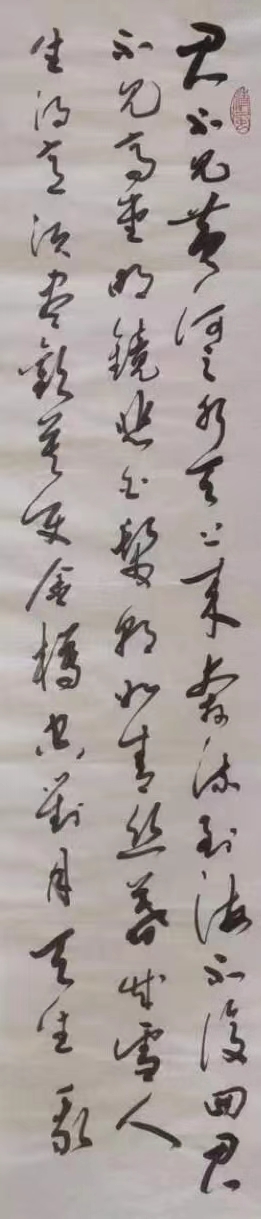 君不见黄河之水天上来奔流到海不复回君
不见高堂明镜悲白发朝如青丝暮成雪人
生得意须尽欢莫使金樽空对月天生我